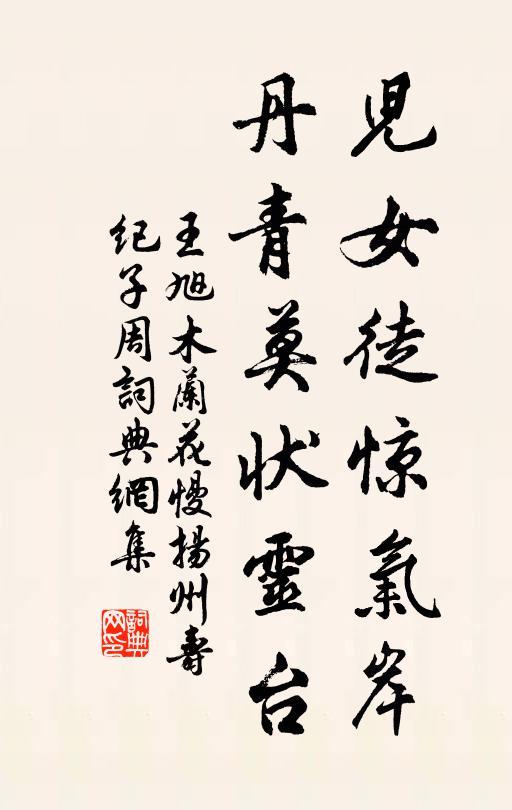 兒女徒惊氣岸
丹青莫状靈台
王旭木蘭花慢揚州壽
紀子周詞典網集
詞典网印